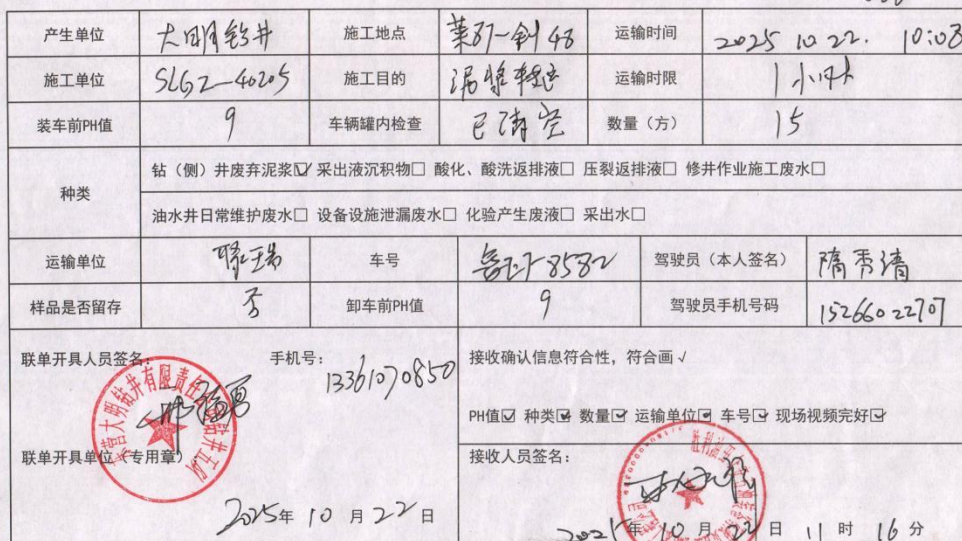 产生单位 大明钻井 施工地点 莱571-斜48 运输时间 2025 10 22. 10:03
施工单位 SLGZ-40205 施工目的 泥浆转运 运输时限 1小时
装车前PH值 9 车辆罐内检查 已清空 数量（方） 15
种类 钻（侧）井废弃泥浆☑ 采出液沉积物□ 酸化、酸洗返排液□ 压裂返排液□ 修井作业施工废水□
油水井日常维护废水□ 设备设施泄漏废水□ 化验产生废液□ 采出水□
运输单位 车号 8582 驾驶员（本人签名） 隋秀清
样品是否留存 否 卸车前PH值 9 驾驶员手机号码 15266022707
联单开具人员签名： 手机号： 13361070850 接收确认信息符合性，符合画√
PH值☑ 种类☑ 数量☑ 运输单位☑ 车号☑ 现场视频完好☑
联单开具单位（专用章） 接收人员签名：
2025年 10 月 22 日 2025年 10 月 22 日 11 时 16 分